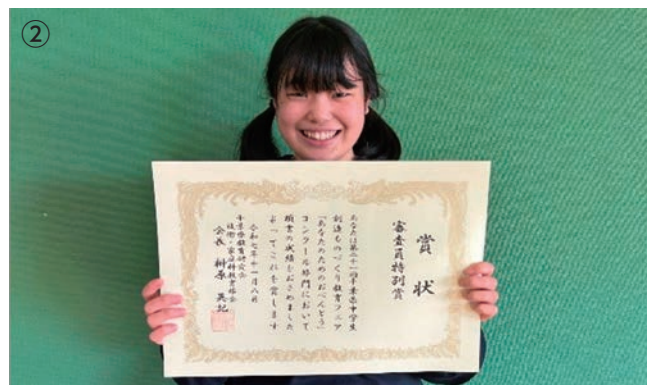 ②
賞状
審査員特別賞
あなたは第二十一回千葉県中学生
創造ものづくり教育フェア
「あなたのためのおべんとう」
コンクール部門において
頭書の成績をおさめました
よってこれを賞します
令和七年十一月八日
千葉県教育研究会
技術・家庭科教育部会
会長 榊原英記